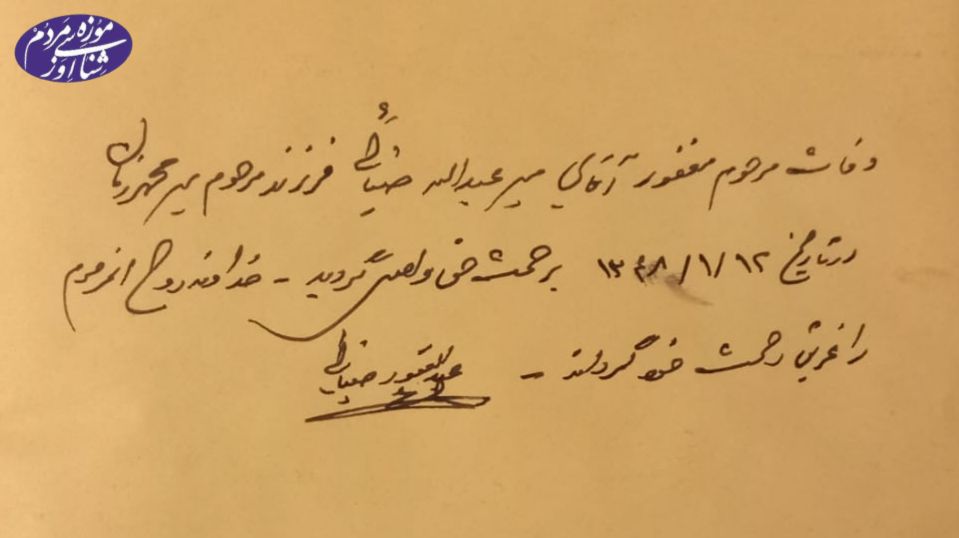 موزه مردم
شناسی اوز
وفات مرحوم مغفور آقای میر عبداله ضیائی فرزند مرحوم میر محمد زمان
در تاریخ ۱۳۴۸/۱/۱۲ برحمت حق واصل گردید - خداوند روح انمرحوم
را غریق رحمت خود گرداند -
عبدالغفور ضیائی